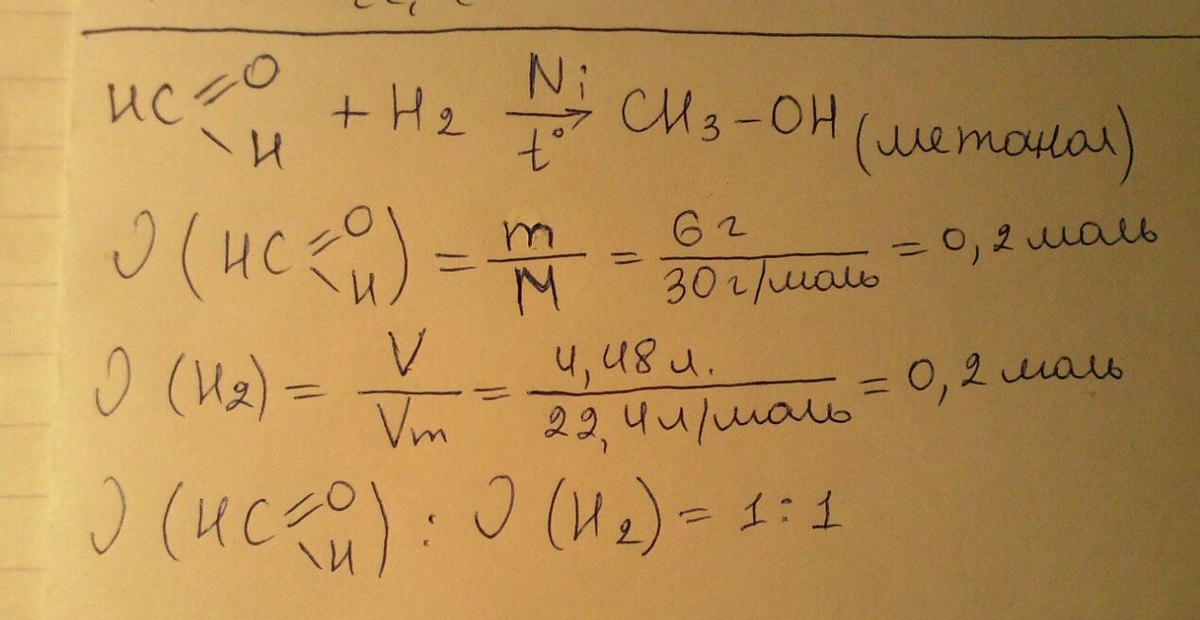 HC=O\H + H2 Ni→t° CH3-OH (метанол)
ν (HC=O\H) = m/M = 6 г/30 г/моль = 0,2 моль
ν (H2) = V/Vm = 4,48 л./22,4 л/моль = 0,2 моль
ν (HC=O\H) : ν (H2) = 1:1